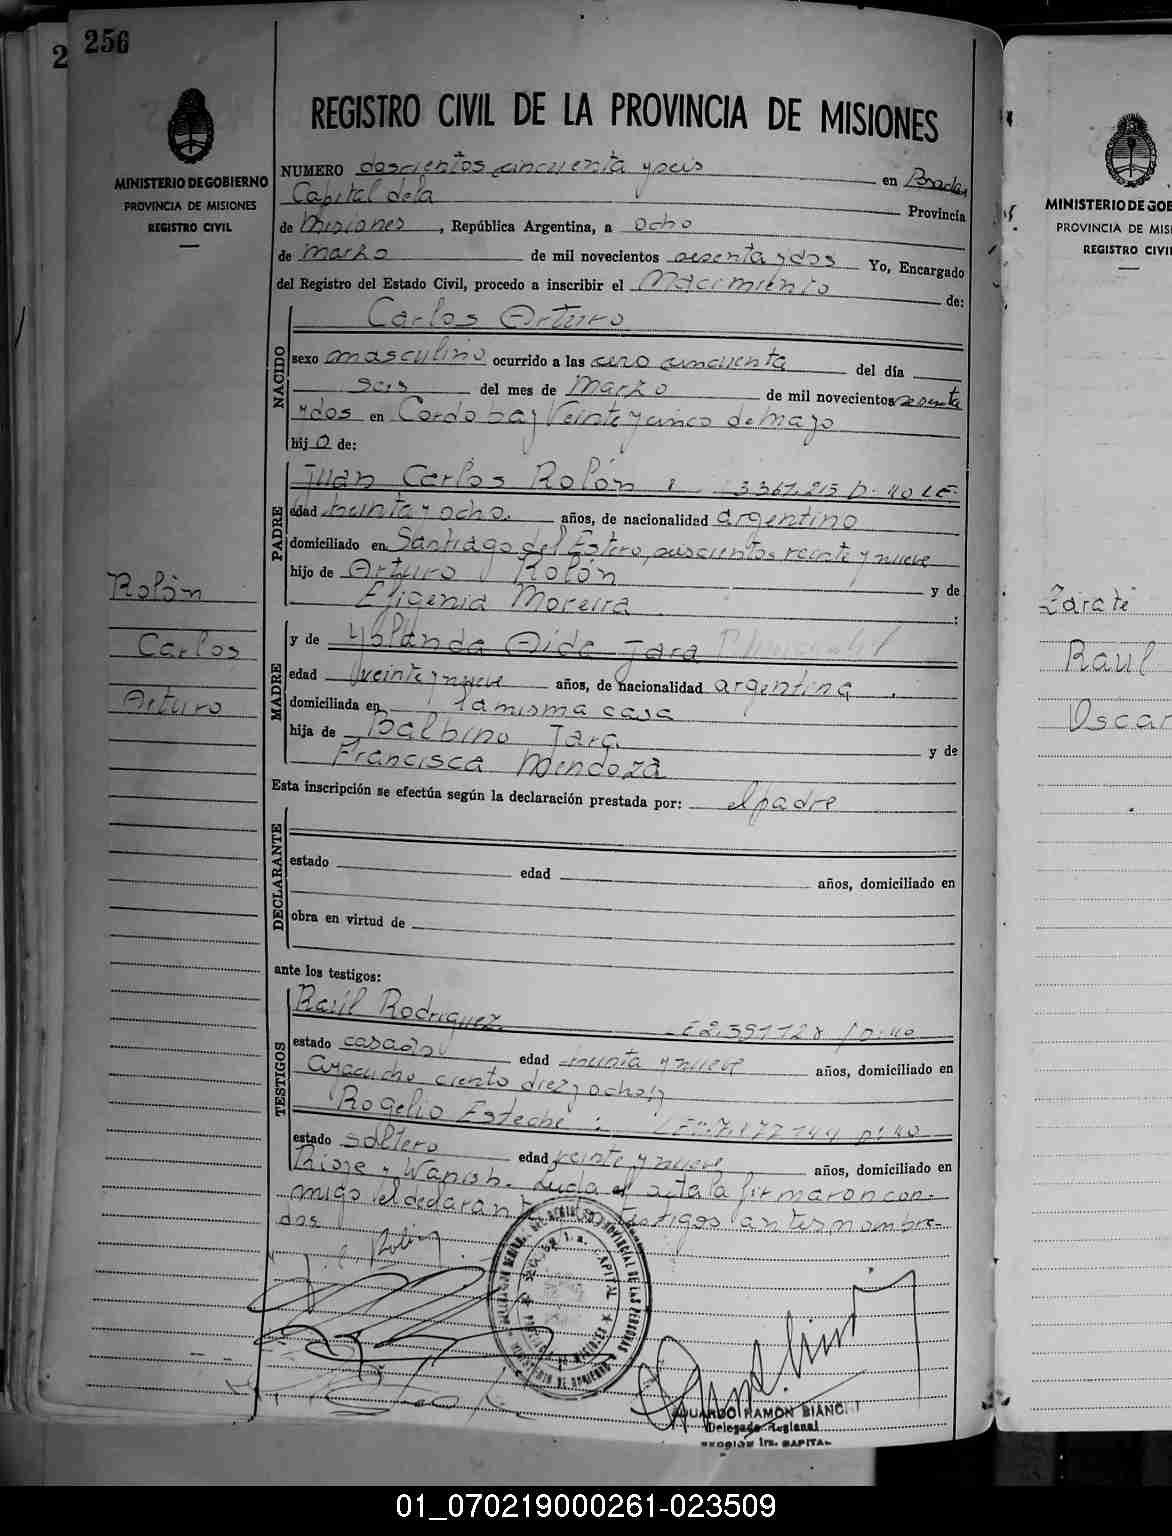 2 256
REGISTRO CIVIL DE LA PROVINCIA DE MISIONES
MINISTERIO DE GOBIERNO
PROVINCIA DE MISIONES
REGISTRO CIVIL
NUMERO doscientos cincuenta y seis en Posadas
Capital de la Provincia
de Misiones, República Argentina, a ocho
de Marzo de mil novecientos sesenta y dos Yo, Encargado
del Registro del Estado Civil, procedo a inscribir el Nacimiento de:
NACIDO
Carlos Arturo
sexo masculino ocurrido a las cero cincuenta del día
seis del mes de Marzo de mil novecientos sesenta
y dos en Cordoba y Veinte y cinco de Mayo
hij o de:
PADRE
Juan Carlos Rolón
edad treinta y ocho años, de nacionalidad argentino
domiciliado en Santiago del Estero, seiscientos veinte y nueve
hijo de Arturo Rolón y de
Efigenia Moreira :
Rolón
Carlos
Arturo
MADRE
y de Yolanda Aida Jara
edad veinte y nueve años, de nacionalidad argentina.
domiciliada en la misma casa
hija de Balbino Jara y de
Francisca Mendoza
Esta inscripción se efectúa según la declaración prestada por: el padre
DECLARANTE
estado edad años, domiciliado en
obra en virtud de
ante los testigos:
TESTIGOS
Raúl Rodriguez
estado casado edad treinta y nueve años, domiciliado en
Ayacucho ciento diez y ocho y
Rogelio Esteche :
estado soltero edad veinte y nueve años, domiciliado en
Rioja y Leida el acta la firmaron con-
migo el declarante testigos antes nombra-
dos
EDUARDO RAMON BIANCHI
Delegado Regional
SECCION 1ra. CAPITAL
MINISTERIO DE GOBIERNO
PROVINCIA DE MIS
REGISTRO CIVI
Zarate
Raul
Oscar
01_070219000261-023509